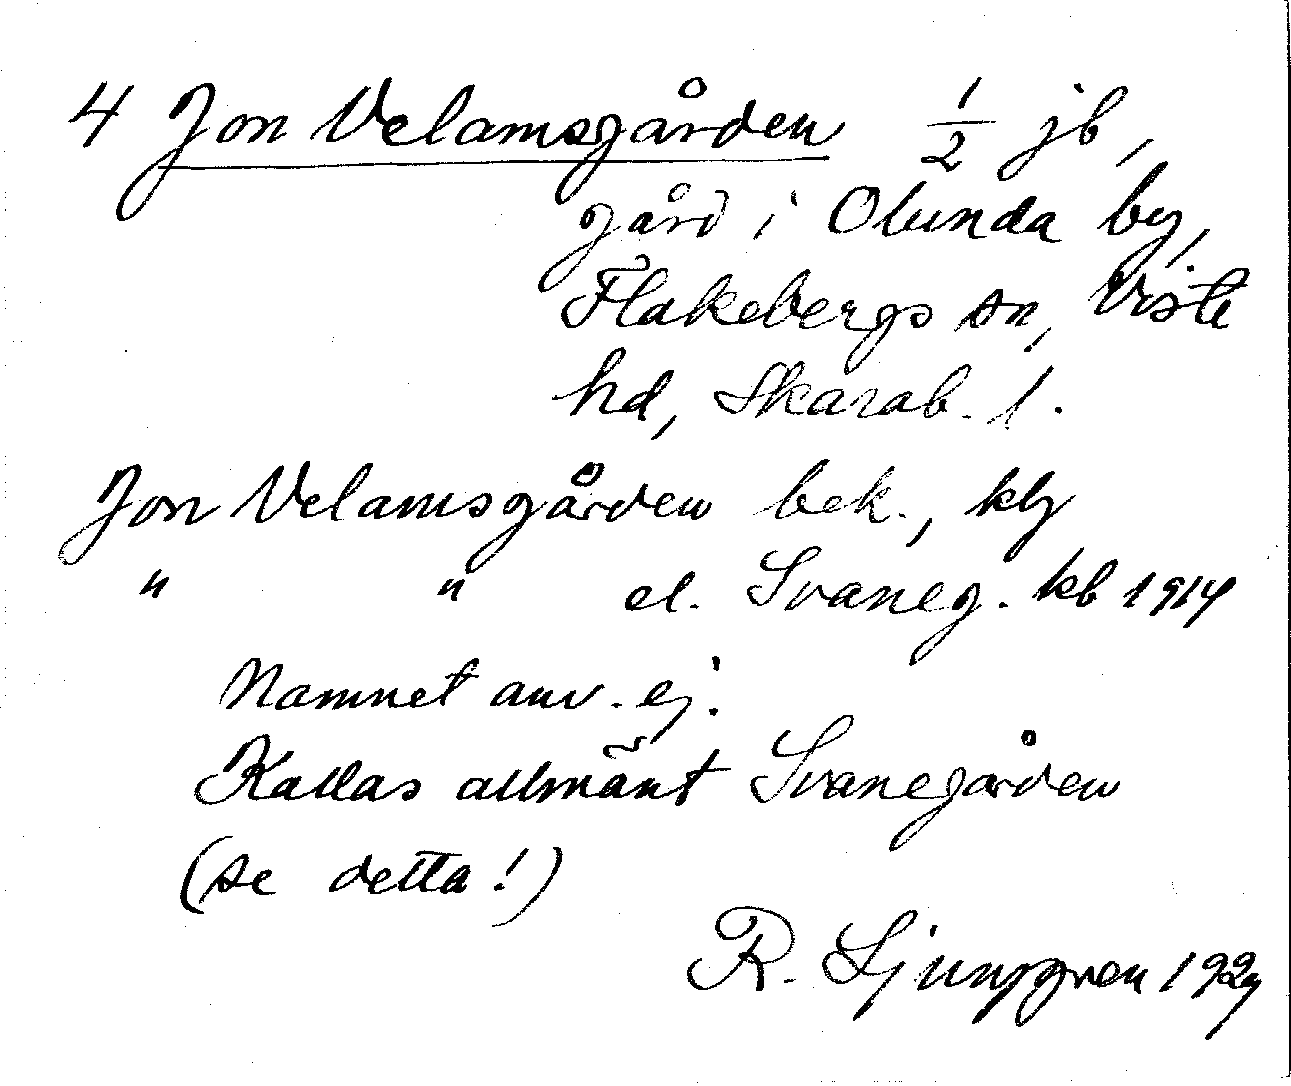 4 Jon Velamsgården 1/2 jb,
gård i Olunda by,
Flakebergs sn, Viste
hd, Skarab. l.
Jon Velamsgården bek., klg
" " el. Svaneg. kb 1914
Namnet anv. ej.
Kallas allmänt Svanegården
(se detta!)
R. Ljunggren 1929